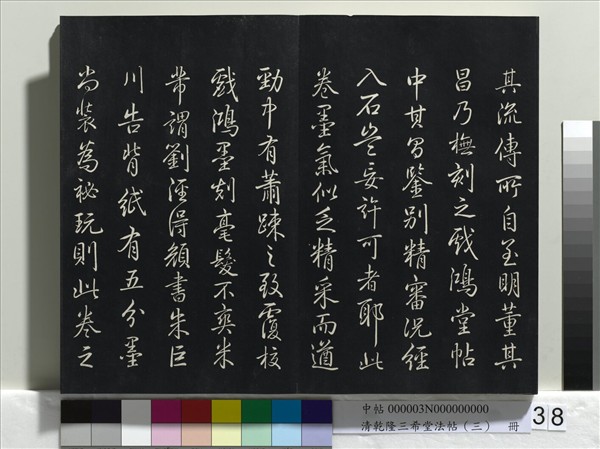 其流傳所自至明董其
昌乃橅刻之戲鴻堂帖
中其昌鑒別精審況經
入石豈妄許可者耶此
卷墨氣似乏精采而遒
勁中有蕭疎之致覆校
戲鴻墨刻毫髮不爽米
芾謂劉涇得顏書朱巨
川告背紙有五分墨
尚裝為祕玩則此卷之
中帖 000003N000000000
清乾隆三希堂法帖（三） 冊
38